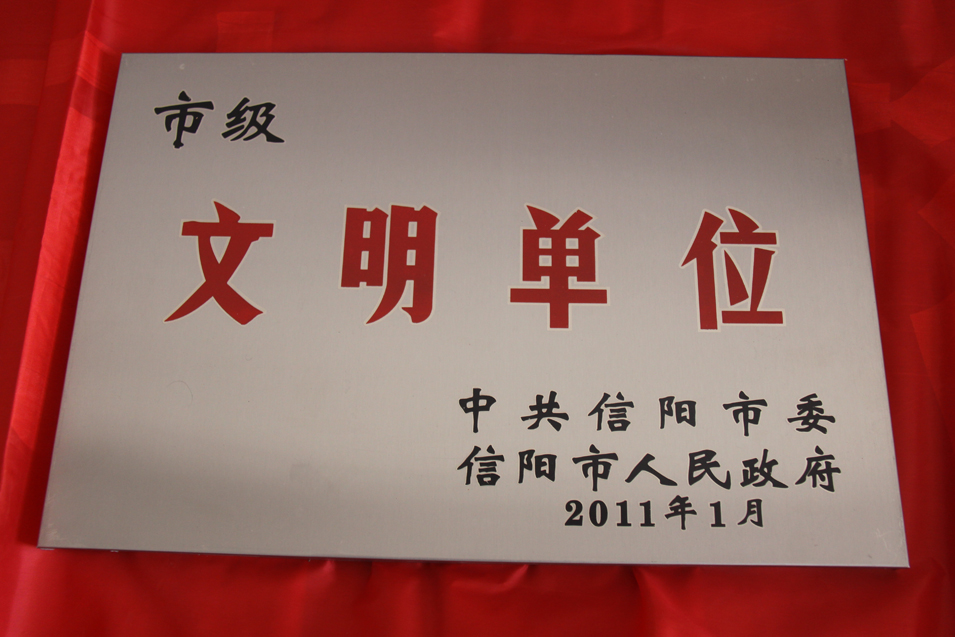 市级
文明单位
中共信阳市委
信阳市人民政府
2011年1月